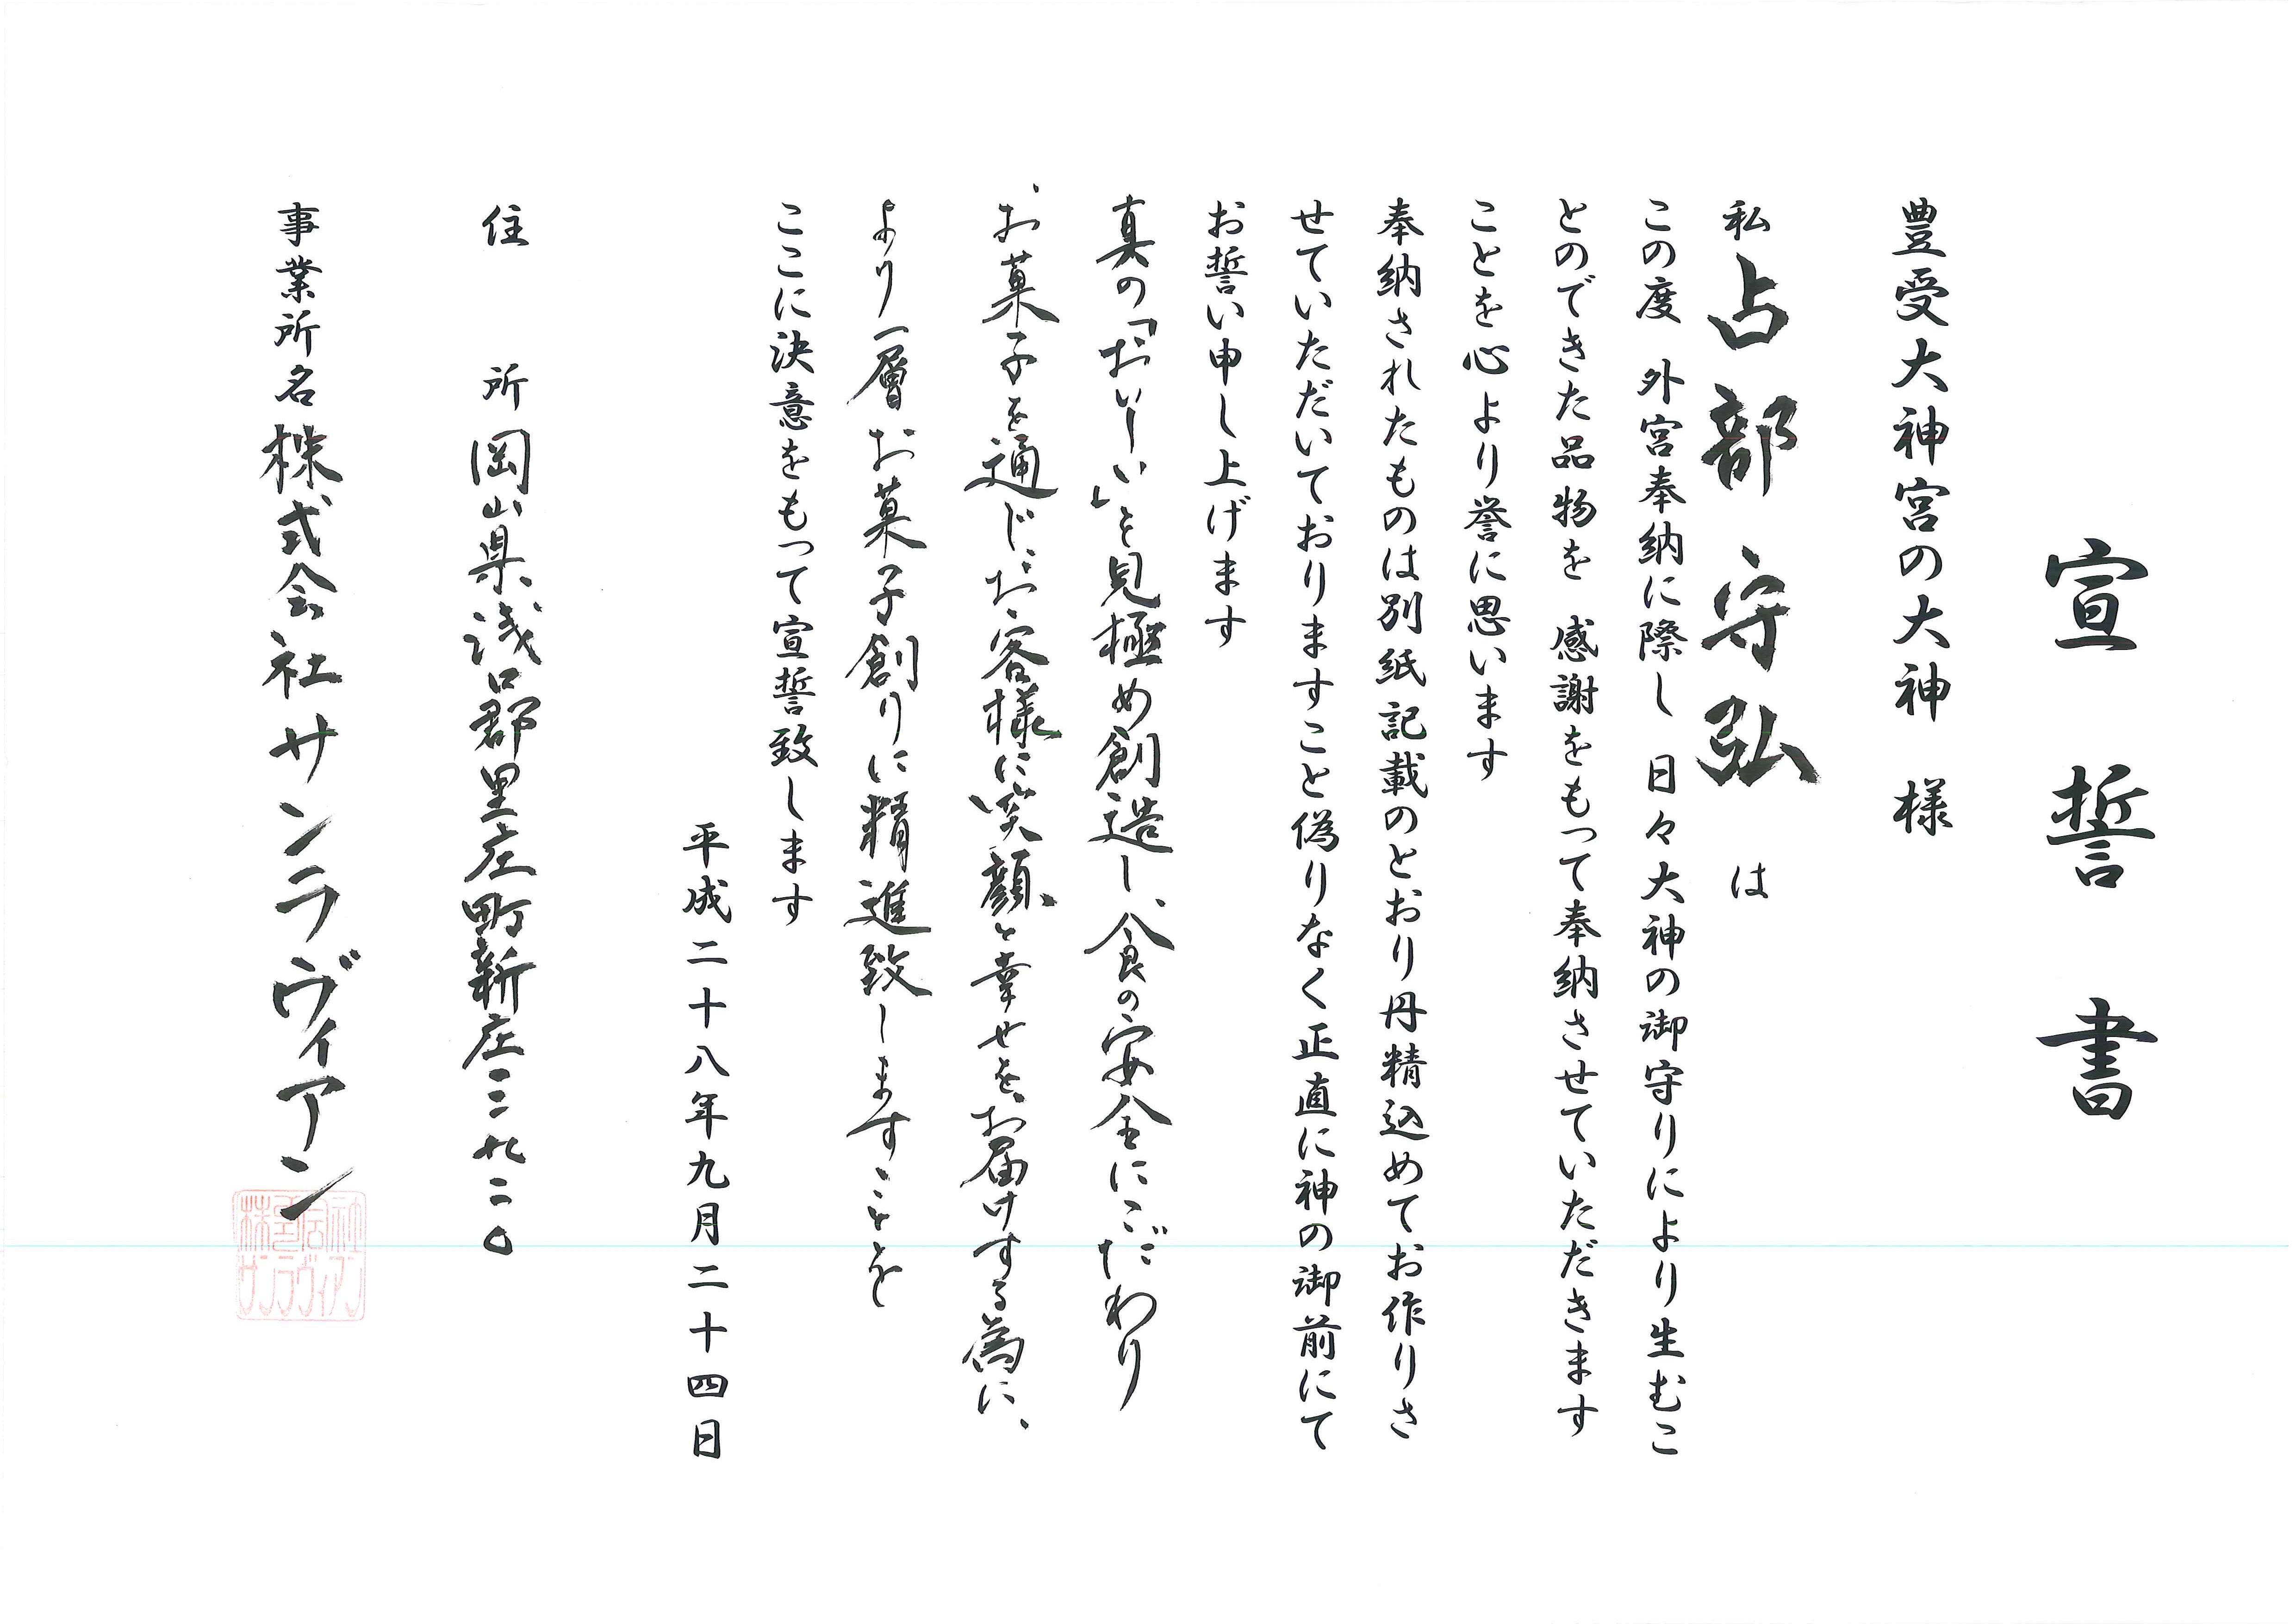 宣誓書
豊受大神宮の大神 様
私 占部守弘 は
この度 外宮奉納に際し 日々大神の御守りにより生むこ
とのできた品物を 感謝をもって奉納させていただきます
ことを心より誉に思います
奉納されたものは別紙記載のとおり丹精込めてお作りさ
せていただいておりますこと偽りなく正直に神の御前にて
お誓い申し上げます
真の「おいしい」を見極め創造し、食の安全にこだわり
お菓子を通じ、お客様に笑顔と幸せをお届けする為に、
より一層お菓子創りに精進致しますことを
ここに決意をもって宣誓致します
平成二十八年九月二十四日
住 所 岡山県浅口郡里庄町新庄三九二〇
事業所名 株式会社サンラヴィアン